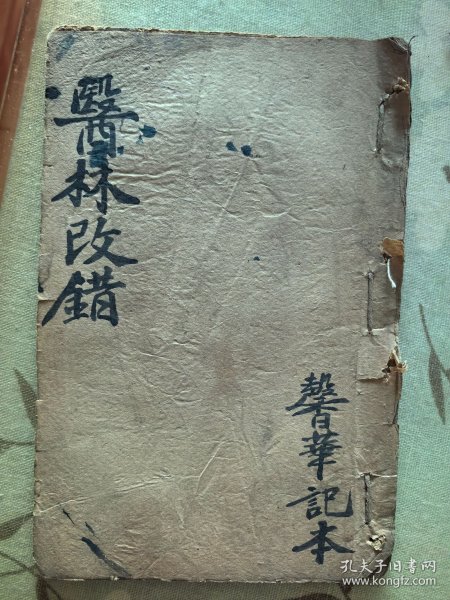 醫林改錯
馨華記本
孔夫子旧书网
www.kongfz.com